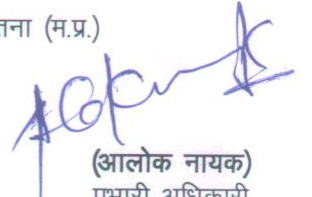 (म.प्र.)
(आलोक नायक)
प्रभारी अधिकारी